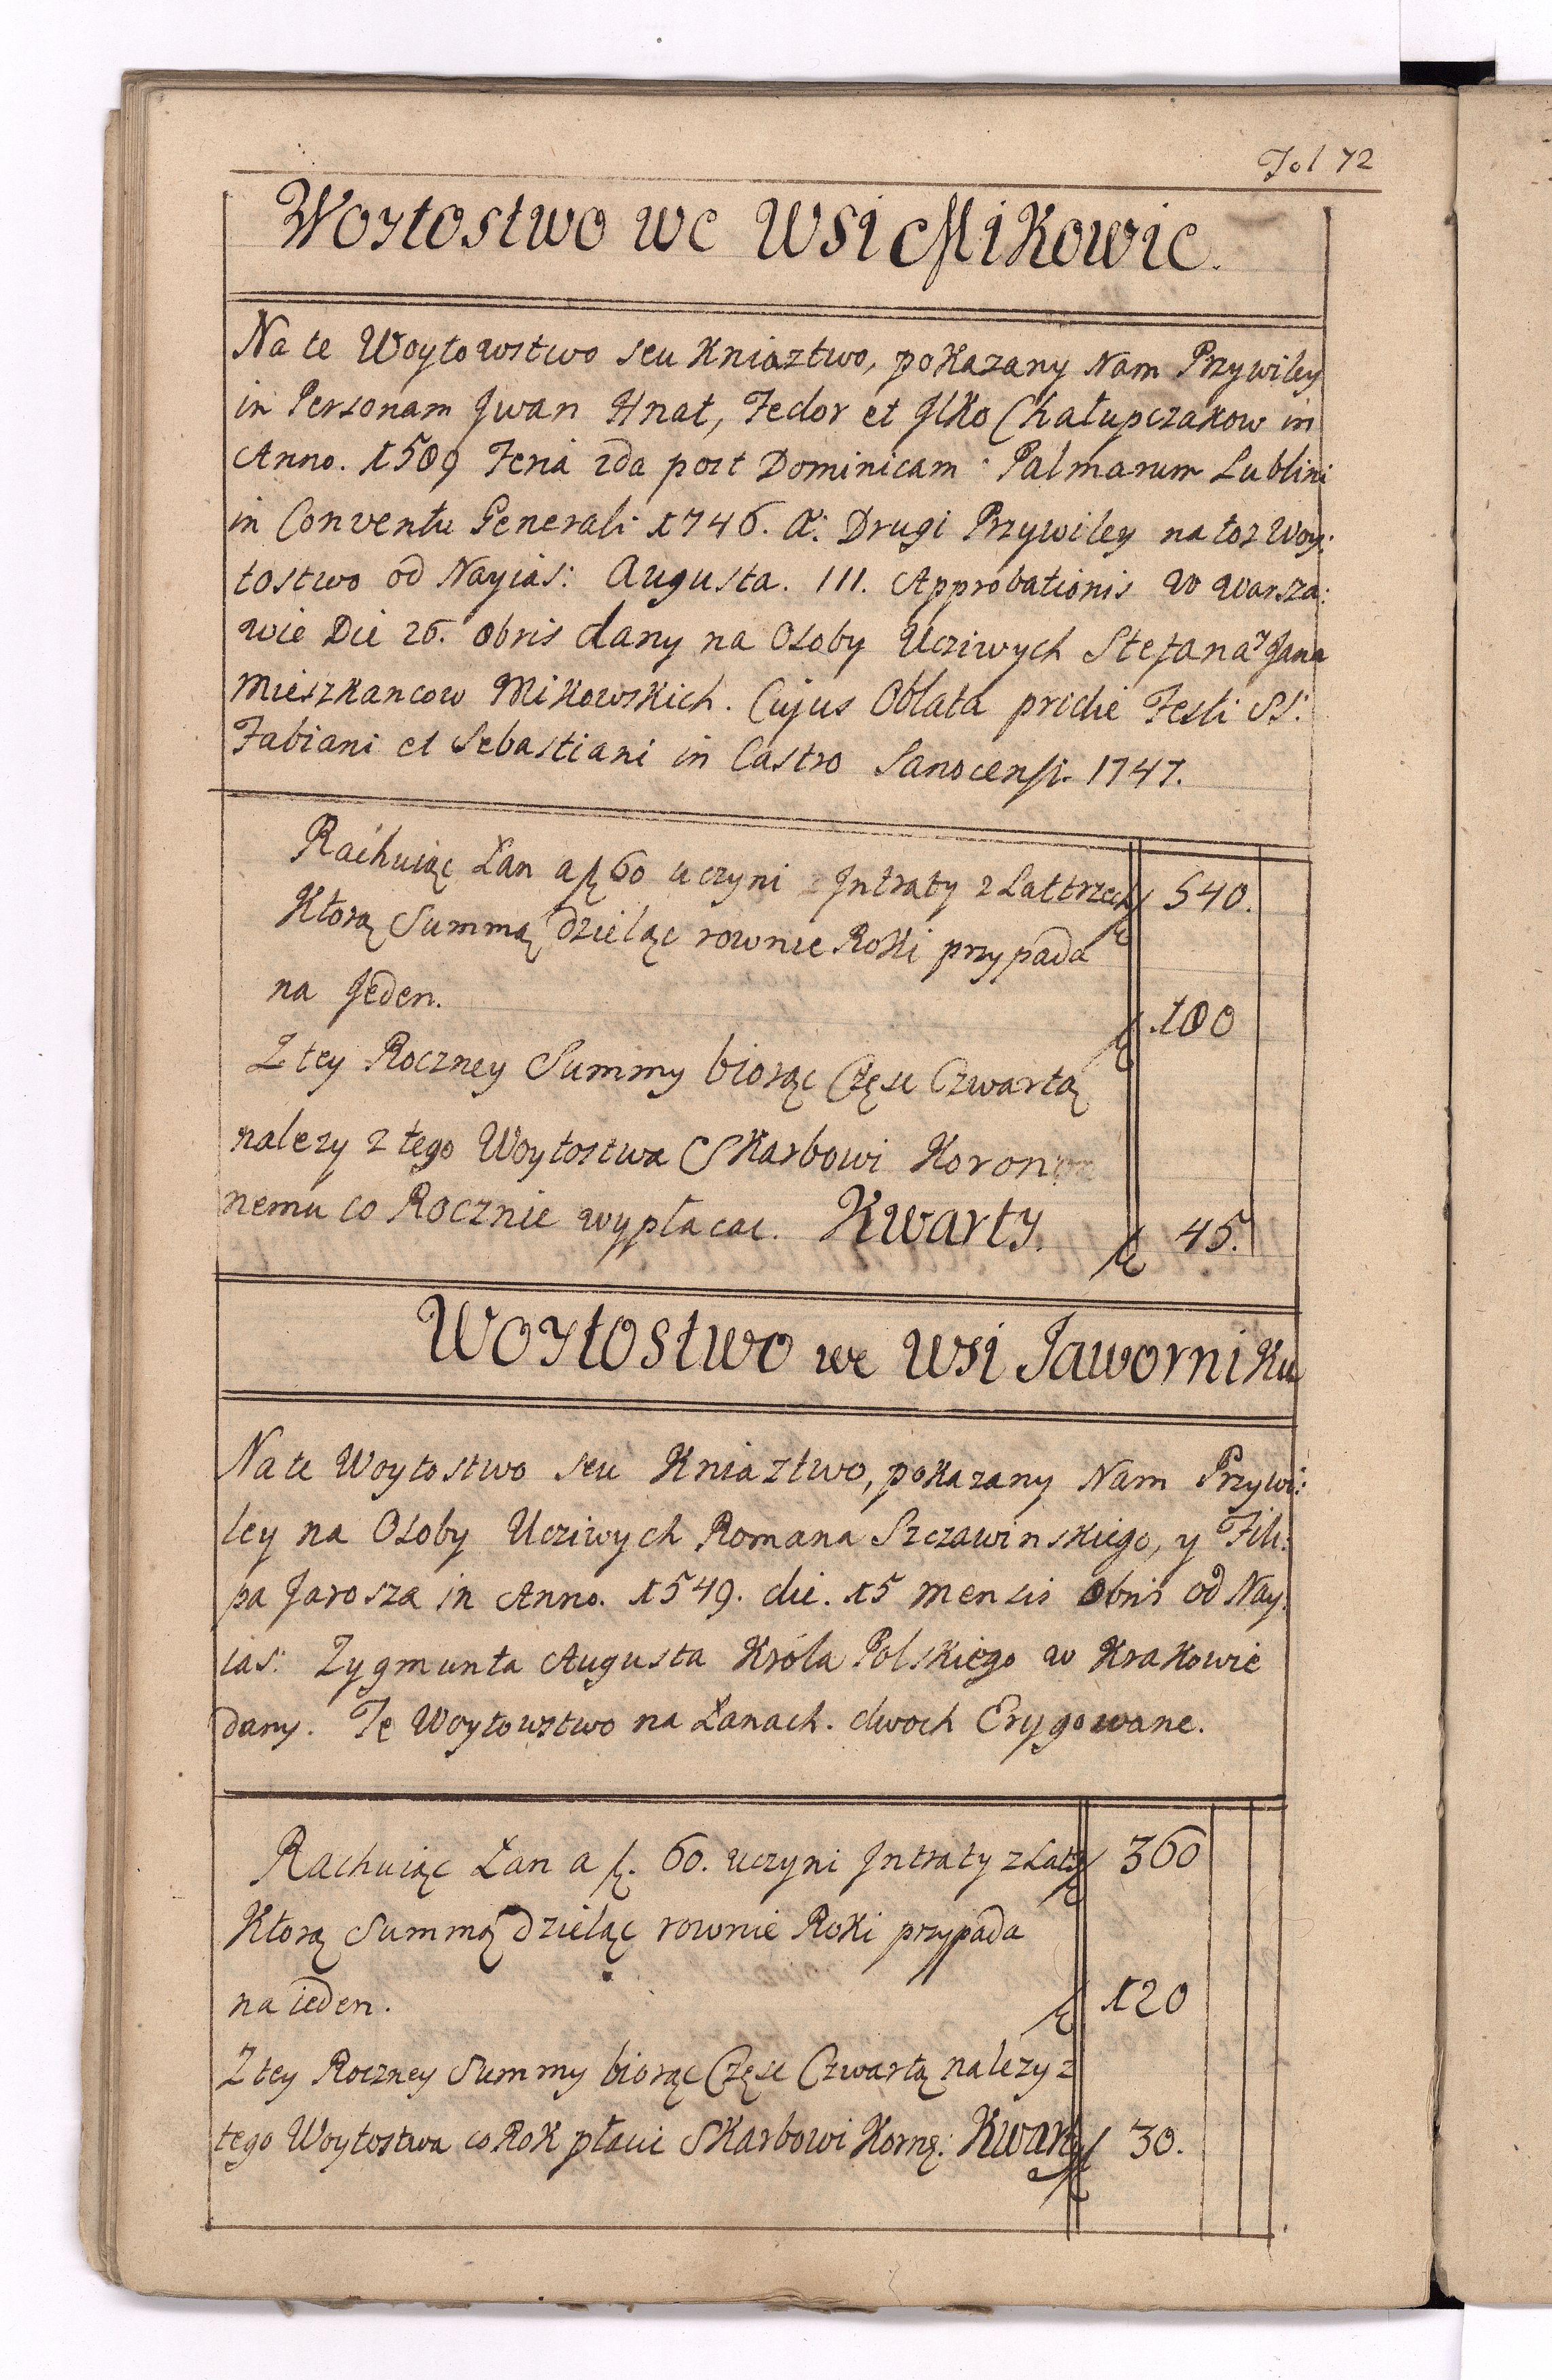 Fol 72
Woytostwo we Wsi Mikowie.
Na te Woytowstwo seu Kniaztwo, pokazany Nam Przywiley
in Personam Jwan Hnat, Fedor et Jlko Chałupczakow in
Anno. 1589 Feria 2da post Dominicam Palmarum Lublini
in Conventu Generali 1746. a: Drugi Przywiley na toz Woy:
tostwo od Nayias: Augusta. III. Approbationis w Warsza:
wie Die 26. 8bris dany na Osoby Ucziwych Stefana y Jana
Mieszkancow Mikowskich. Cujus Oblata pridie Festi SS:
Fabiani et Sebastiani in Castro Sanocensi. 1747.
Rachuiąc Łan a fl 60 uczyni Jntraty z Lat trzech fl 540.
Ktorą Summą dzieląc rownie Roki przypada
na Jeden. fl 180
Z tey Roczney Summy biorąc Częsc Czwartą
nalezy z tego Woytostwa Skarbowi Koron
nemu co Rocznie wypłacac. Kwarty. fl 45.
Woytostwo we Wsi Jaworniku
Na te Woytostwo seu Kniaztwo, pokazany Nam Przywi:
ley na Osoby Ucziwych Romana Szczawinskiego, y Fili:
pa Jarosza in Anno. 1549. die. 15 Mensis 8bris od Nay:
ias: Zygmunta Augusta Króla Polskiego w Krakowie
dany. Te Woytowstwo na Łanach. dwoch Erygowane.
Rachuiąc Łan a fl. 60. uczyni Jntraty z Lat 3 fl 360
Ktorą Summą dzieląc rownie Roki przypada
na ieden. fl 120
Z tey Roczney Summy biorąc Częsc Czwartą nalezy z
tego Woytostwa co Rok płacic Skarbowi Kornę: Kwarty fl 30.